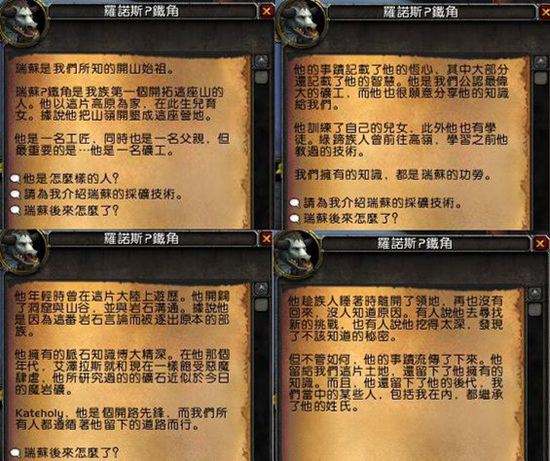 羅諾斯?鐵角
瑞蘇是我們所知的開山始祖。
瑞蘇?鐵角是我族第一個開拓這座山的
人。他以這片高原為家，在此生兒育
女。據說他把山嶺開墾成這座營地。
他是一名工匠，同時也是一名父親，但
最重要的是…他是一名礦工。
他是怎麼樣的人?
請為我介紹瑞蘇的採礦技術。
瑞蘇後來怎麼了?
羅諾斯?鐵角
他的事蹟記載了他的恆心，其中大部分
還記載了他的智慧。他是我們公認最偉
大的礦工，而他也很願意分享他的知識
給我們。
他訓練了自己的兒女，此外他也有學
徒。綠蹄族人曾前往高嶺，學習之前他
教過的技術。
我們擁有的知識，都是瑞蘇的功勞。
請為我介紹瑞蘇的採礦技術。
瑞蘇後來怎麼了?
羅諾斯?鐵角
他年輕時曾在這片大陸上遊歷。他開闢
了洞窟與山谷，並與岩石溝通。據說他
是因為這番岩石言論而被逐出原本的部
族。
他擁有的脈石知識博大精深。在他那個
年代，艾澤拉斯就和現在一樣飽受惡魔
肆虐，他所研究過的的礦石近似於今日
的魔岩礦。
Kateholy，他是個開路先鋒，而我們所
有人都遁循著他留下的道路而行。
瑞蘇後來怎麼了?
羅諾斯?鐵角
他趁族人睡著時離開了領地，再也沒有
回來，沒人知道原因。有人說他去尋找
新的挑戰，也有人說他挖得太深，發現
了不該知道的秘密。
但不管如何，他的事蹟流傳了下來。他
留給我們這片土地，還留下了他擁有的
知識。而且，他還留下了他的後代，我
們當中的某些人，包括我在內，都繼承
了他的姓氏。